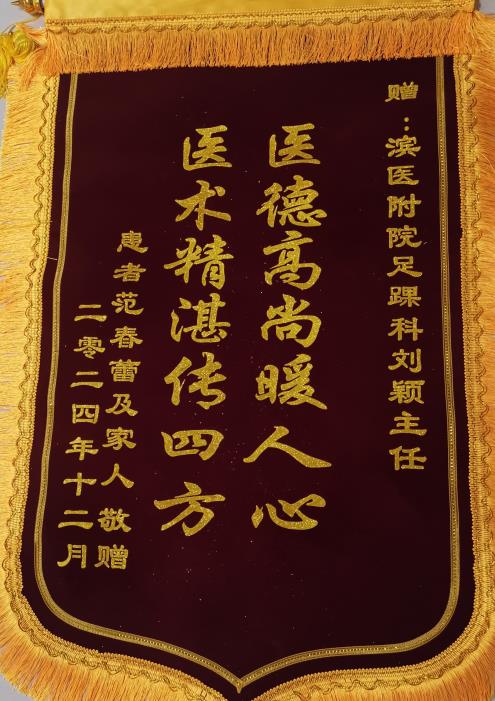 赠：滨医附院足踝科刘颖主任
医德高尚暖人心
医术精湛传四方
患者范春蕾及家人敬赠
二零二四年十二月